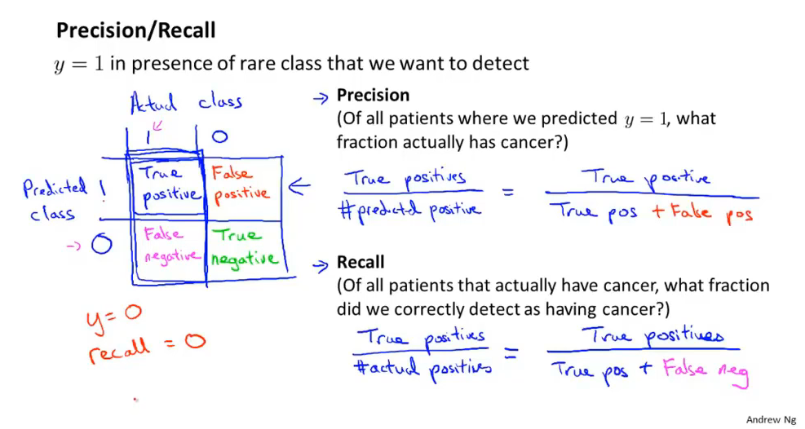 Precision/Recall
y = 1 in presence of rare class that we want to detect
Actual class
1 0
Predicted class
1
True positive
False positive
0
False negative
True negative
y = 0
recall = 0
→ Precision
(Of all patients where we predicted y = 1, what
fraction actually has cancer?)
True positives
#predicted positive
=
True positive
True pos + False pos
→ Recall
(Of all patients that actually have cancer, what fraction
did we correctly detect as having cancer?)
True positives
#actual positives
=
True positives
True pos + False neg
Andrew Ng